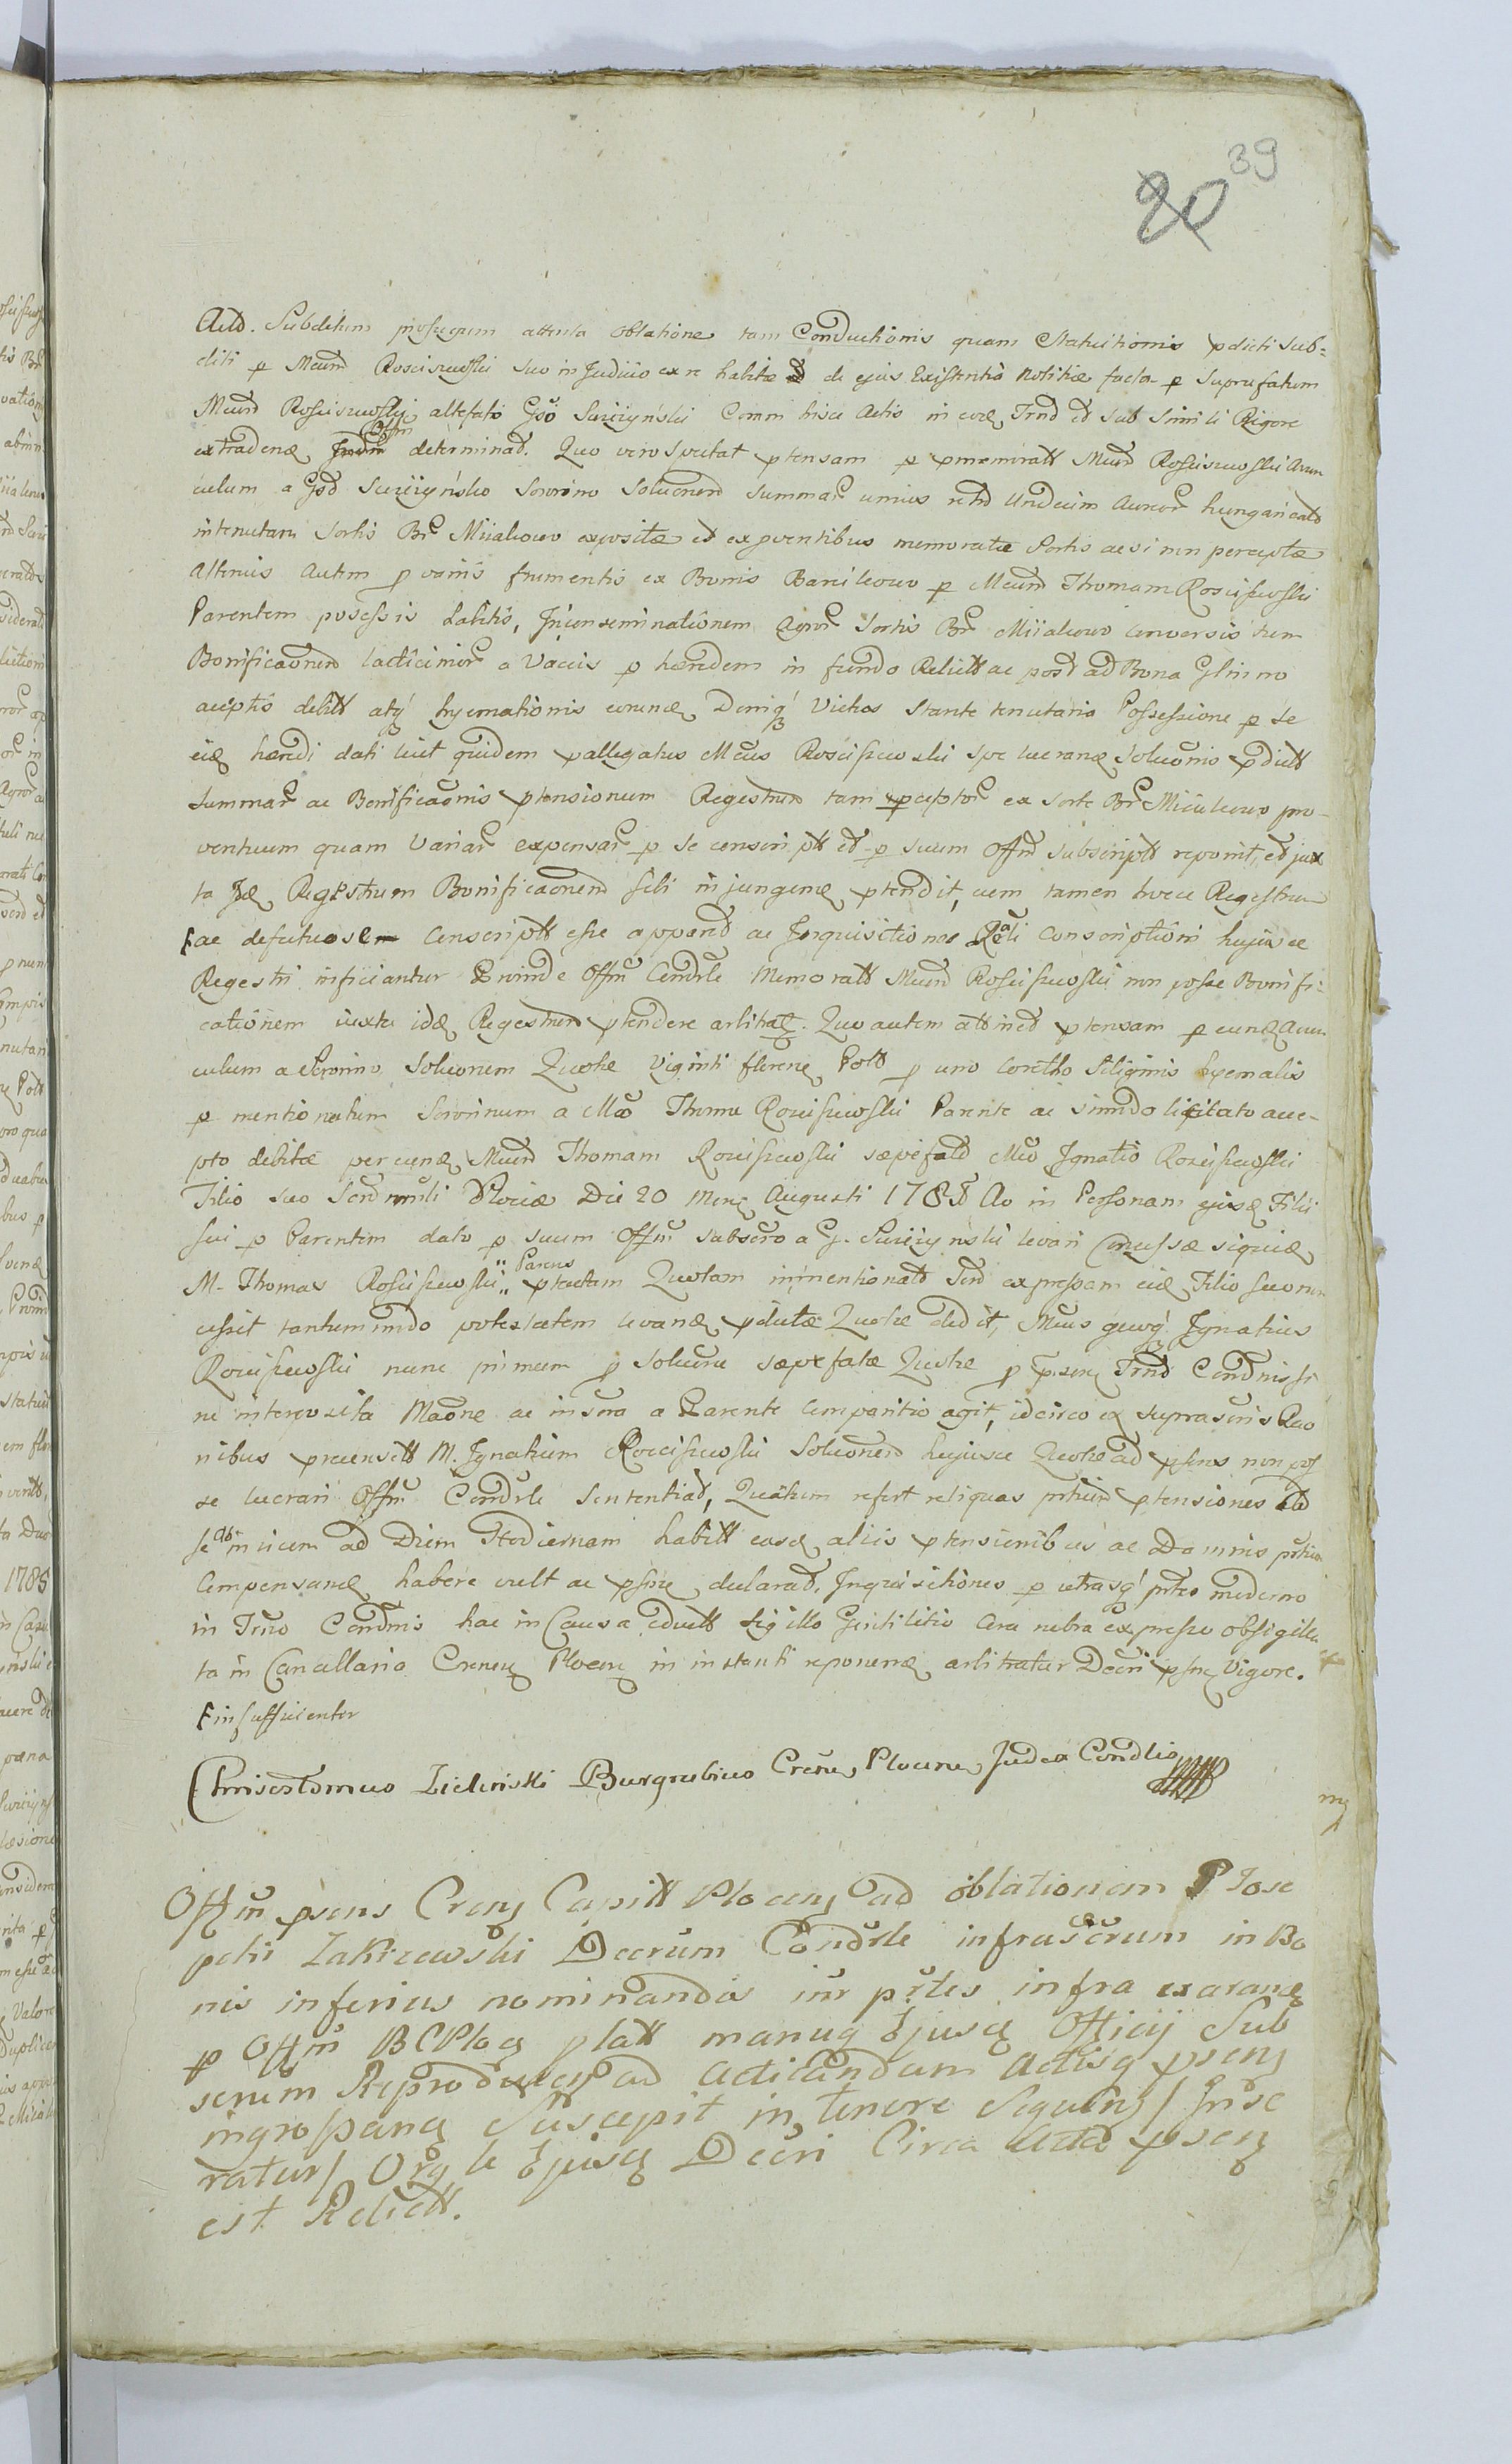 39
20
Actd. Subditum profugum attenta oblatione tam Conductionis quam Statuitionis pdicti Sub=
diti p Mcum Rosciszewski suo in Judicio ex re habitæ & de ejus Existentia Notitiæ factæ p Suprafatum
Mcum Rosciszewski attefato Gso Surzynski Comm hisce Actis in eod Trnd et sub simili Rigore
extradend Offm determinat. Quo vero spectat ptensam p pmemoratt Mcum Rosciszewski Avun
culum a Gsd Surzynsko Sororino Solucnem Summar unius retd Undecim Aureor hungaricald
in tenutam Sortis Br Miialkowo expositæ et ex proventibus memoratæ Sortis ac si non perceptæ
Alterius Autem p variis frumentis ex Bonis Barcikowo p Mcum Thomam Rosciszewski
Parentem posessis habitis, In conseminationem Agror Sortis Br Miialkowo conversis tum
Bonificaonem lacticinior a Vaccis p hæredem in fundo Relictt ac post ad Bona Glinno
acceptis debitt atq hyemationis earund Deniq Victus Stante tenutaria Possessione p se
eid hæredi dati licet quidem pallegatus Mcus Rosciszewski spe lucrand Solucionis pdictt
Summar ac Bonificaonis ptensionum Regestrum tam perceptor ex Sorte Br Miialkowo pro-
ventuum quam Variar expensar p se conscriptt et p suum Offm subscriptt reponit, et jux
ta Id Regestrum Bonificaonem sibi injungend ptendit, cum tamen hocce Regestrum
F ac defectuose conscriptt esse apparet ac Inquisitiones Rali conscriptioni hujusce
Regestri inficiantur Proinde Offm Condrle Memoratt Mcum Rosciszewski non posse Bonifi=
cationem iuxta idd Regestrum ptendere arbitratt. Quo autem attinet ptensam p eund Avun
culum a Sororino Solucionem Quotæ Viginti floren Poll p uno coretho Siliginis hyemalis
p mentionatum Sororinum a Mco Thoma Rosciszewski Parente ac simodo licitato acce-
pto debitæ per eund Mcum Thomam Rosciszewski sæpefatt Mco Ignatio Rosciszewski
Filio suo Scrd mnli Plociæ Die 20 Mens Augusti 1788 Ao in Personam ejusd Filii
sui p Parentem dato p suum Offm subscro a G. Surzynski levari Comissæ siquid
M. Thomas Rosciszewski " Parens " ptactam Quotam in mentionatt Scrd expressam eid Filio suo non
cessit tantummodo potestatem levand pdictæ Quotæ dedit, Mcus quoq Ignatius
Rosciszewski nunc primum p solucne sæpefatæ Quotæ p psens Trnd Condnis si
ne interposita Maone ac in sua a Parente Comparitio agit, idcirco ex suprascris Rao
nibus precensitt M. Ignatium Rosciszewski Solucionem hujusce Quotæ ad psens non pos
se lucrari Offm Condrle Sententiat, Quantum refert reliquas prtium ptensiones ad
se ab invicem ad Diem Hodiernam habitt eased aliis ptensionibus ac Damnis prtium
Compensand habere vult ac psne declarat. Inquisitiones p utrasq prtes moderno
in Trno Condnis hac in Causa eductt Sigillo Gentilitio Cera rubra expresso obsigilla
ta in Cancellaria Crens Plocen in instanti reponend arbitratur Decri psns Vigore.
F insufficienter
Chrisostomus Zielinski Burgrabius Crens Plocens Judex Condlis
Offm psens Crens Capitt Plocens ad oblationem P Jose
phi Zakrzewski Decrum Condrle infrascrum in Bo
nis inferius nominandis intr prtes infra exarand
p Offm BCPlocs platt manuq Ejusd Officij Sub
scrum Reproducens ad acticandum Actisq psens
ingrossand Suscepit in tenore Sequens / Inse
ratur / Orgle Ejusd Decri Circa Acta psens
est Relictt.